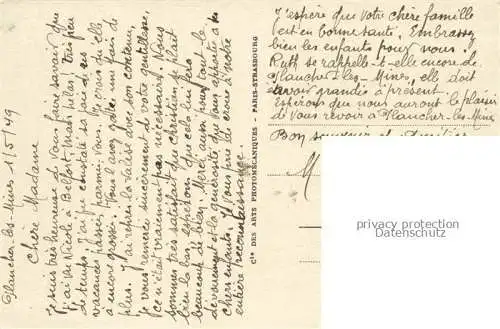 Plancher-les-Mines 1/5/49
Chère Madame
Je suis très heureuse de vous faire savoir que
j'ai vu Nicole à Belfort, mais hélas! très peu
de temps. J'ai pu constaté sa joie des
vacances passées parmi vous. Je crois qu'elle
a encore grossi. Vous l'avez gâtée une fois de
plus. J'ai repris la valise avec son contenu,
je vous remercie sincèrement de votre gentillesse,
ce n'était vraiment pas nécessaire. Nous
sommes très satisfait que Christian se plait
bien là-bas espérons que cela lui fera
beaucoup de bien. Merci aussi pour tout le
dévouement et la générosité, que vous apportez à
chers enfants, je vous prie de croire à notre
entière reconnaissance.
Cie DES ARTS PHOTOMÉCANIQUES - PARIS-STRASBOURG
J'espère que votre chère famille
est en bonne santé. Embrassez
bien les enfants pour nous.
Ruth se rappelle-t-elle encore de
Plancher-les-Mines, elle doit
avoir grandis à présent.
Espérons que nous auront le plaisir
de vous revoir à Plancher-les-Mines
Bon souvenir et Amitiés
M
privacy protection
Wird im Original